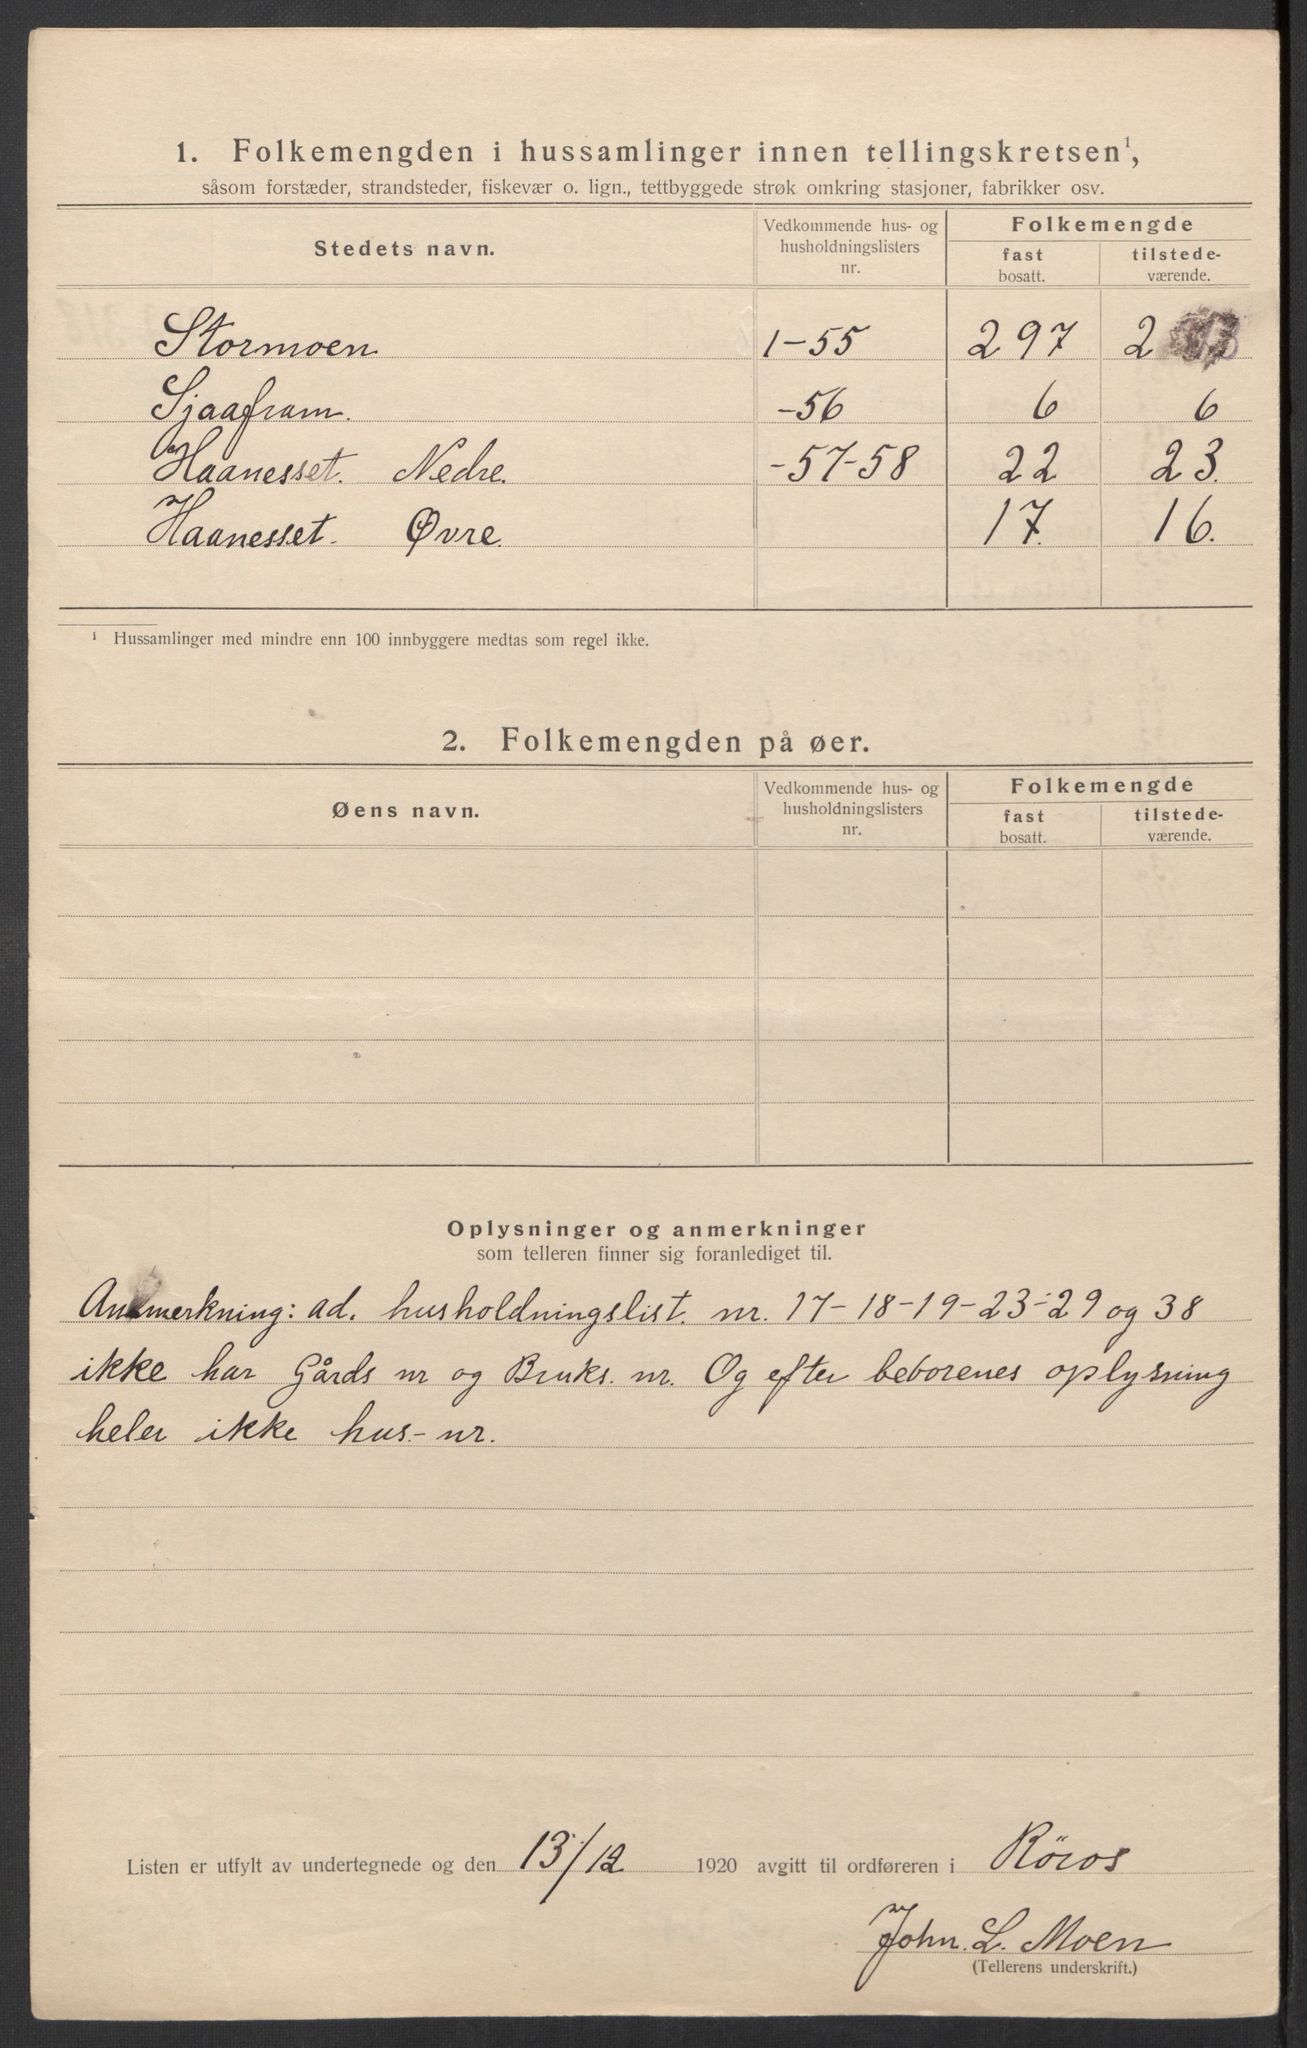 1. Folkemengden i hussamlinger innen tellingskretsen¹,
såsom forstæder, strandsteder, fiskevær o. lign., tettbyggede strøk omkring stasjoner, fabrikker osv.
Stedets navn. Vedkommende hus- og husholdningslisters nr. Folkemengde
fast bosatt. tilstede-værende.
Stormoen 1-55 297 2
Sjaafram. -56 6 6
Haanesset. Nedre. -57-58 22 23.
Haanesset. Øvre. 17. 16.
¹ Hussamlinger med mindre enn 100 innbyggere medtas som regel ikke.
2. Folkemengden på øer.
Øens navn. Vedkommende hus- og husholdningslisters nr. Folkemengde
fast bosatt. tilstede-værende.
Oplysninger og anmerkninger
som telleren finner sig foranlediget til.
Anmerkning: ad. husholdningslist. nr. 17-18-19-23-29 og 38
ikke har Gårds nr og Bruks. nr. Og efter beboenes oplysning
heler ikke hus.- nr.
Listen er utfylt av undertegnede og den 13/12 1920 avgitt til ordføreren i Röros
John. L. Moen
(Tellerens underskrift.)